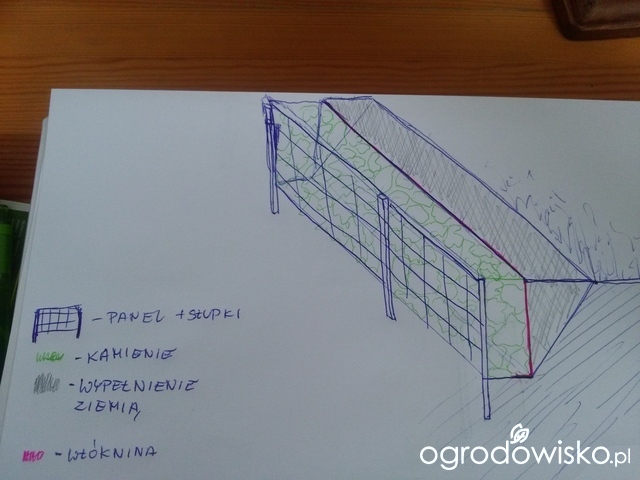 - PANEL + SŁUPKI
- KAMIENIE
- WYPEŁNIENIE
ZIEMIĄ
- WŁÓKNINA
ogrodowisko.pl